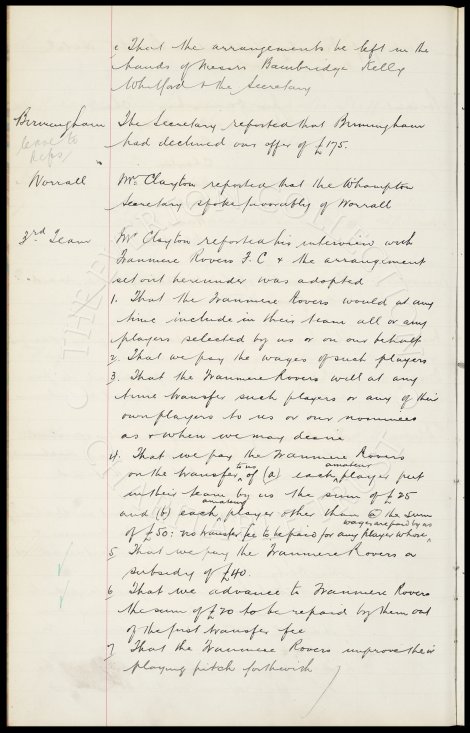 c That the arrangements be left in the
hands of Messrs Bainbridge Kelly
Whitford & the Secretary
Birmingham
leave to
Refs
The Secretary reported that Birmingham
had declined our offer of £175.
Worrall
Mr. Clayton reported that the Whampton
Secretary spoke favorably of Worrall
3rd Team
Mr Clayton reported his interview with
Tranmere Rovers F.C & the arrangement
set out hereunder was adopted
1. That the Tranmere Rovers would at any
time include in their team all or any
players selected by us or on our behalf
2. That we pay the wages of such players
3. That the Tranmere Rovers will at any
time transfer such players or any of their
own players to us or our nominees
as & when we may desire
4. That we pay the Tranmere Rovers
on the transfer to us of (a) each amateur player put
in their team by us the sum of £25
and (b) each amateur player other than @ the sum
of £50: no transfer fee to be paid for any player whose wages are paid by us
5 That we pay the Tranmere Rovers a
subsidy of £40.
6 That we advance to Tranmere Rovers
the sum of £20 to be repaid by them out
of the first transfer fee
7 That the Tranmere Rovers improve their
playing pitch forthwith